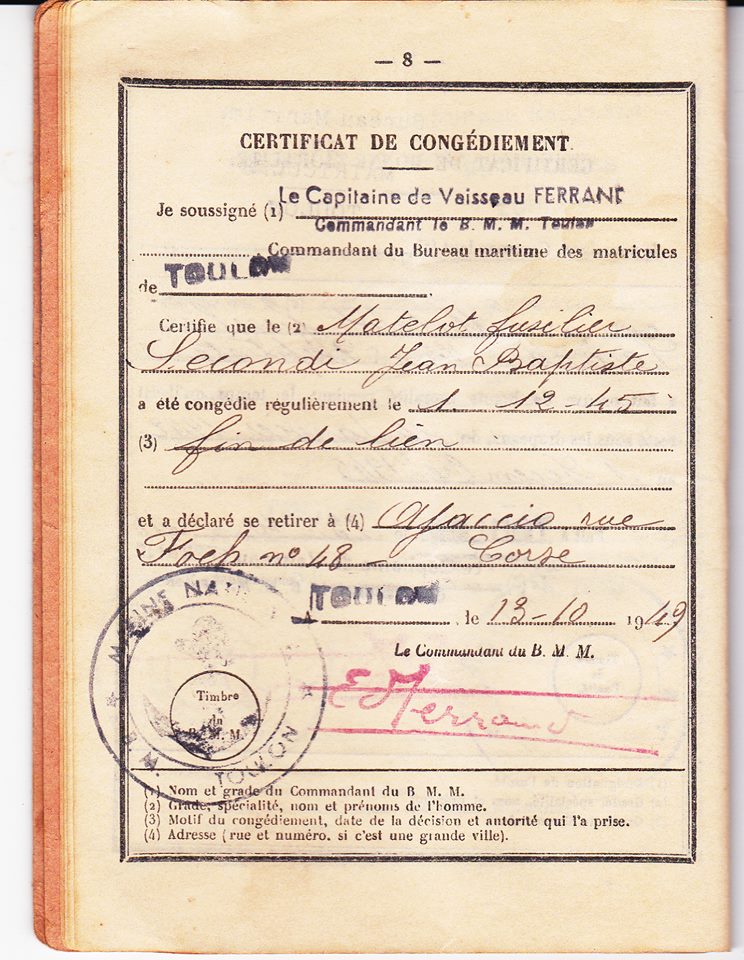 — 8 —
CERTIFICAT DE CONGÉDIEMENT
Le Capitaine de Vaisseau FERRANT
Je soussigné (1)
Commandant le B. M. M. Toulon
Commandant du Bureau maritime des matricules
de TOULON
Certifie que le (2) Matelot fusilier
Secondi Jean Baptiste
a été congédie régulièrement le 1. 12-45
(3) fin de lien
et a déclaré se retirer à (4) Ajaccio rue
Foch n° 48 - Corse
A TOULON, le 13-10 1949
Le Commandant du B. M. M.
MARINE NATIONALE
Timbre
du
B. M. M.
B. M. M. TOULON
(1) Nom et grade du Commandant du B M. M.
(2) Grade, spécialité, nom et prénoms de l'homme.
(3) Motif du congédiement, date de la décision et autorité qui l'a prise.
(4) Adresse (rue et numéro. si c'est une grande ville).